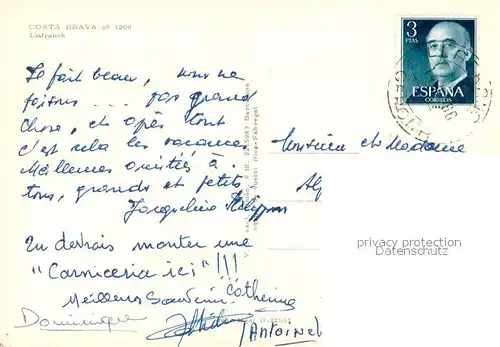 COSTA BRAVA nº 1209
Llafranch
Il fait beau, nous ne
faisons ... pas grand
chose, et après tout
c'est cela les vacances
Meilleures amitiés à
tous, grands et petits
Jacqueline Philippe
Tu devrais monter une
"Carniceria ici" !!!
Meilleurs Souvenirs Catherine
Dominique
Antoine
3
PTAS
ESPAÑA
CORREOS
Monsieur et Madame
privacy protection
Datenschutz